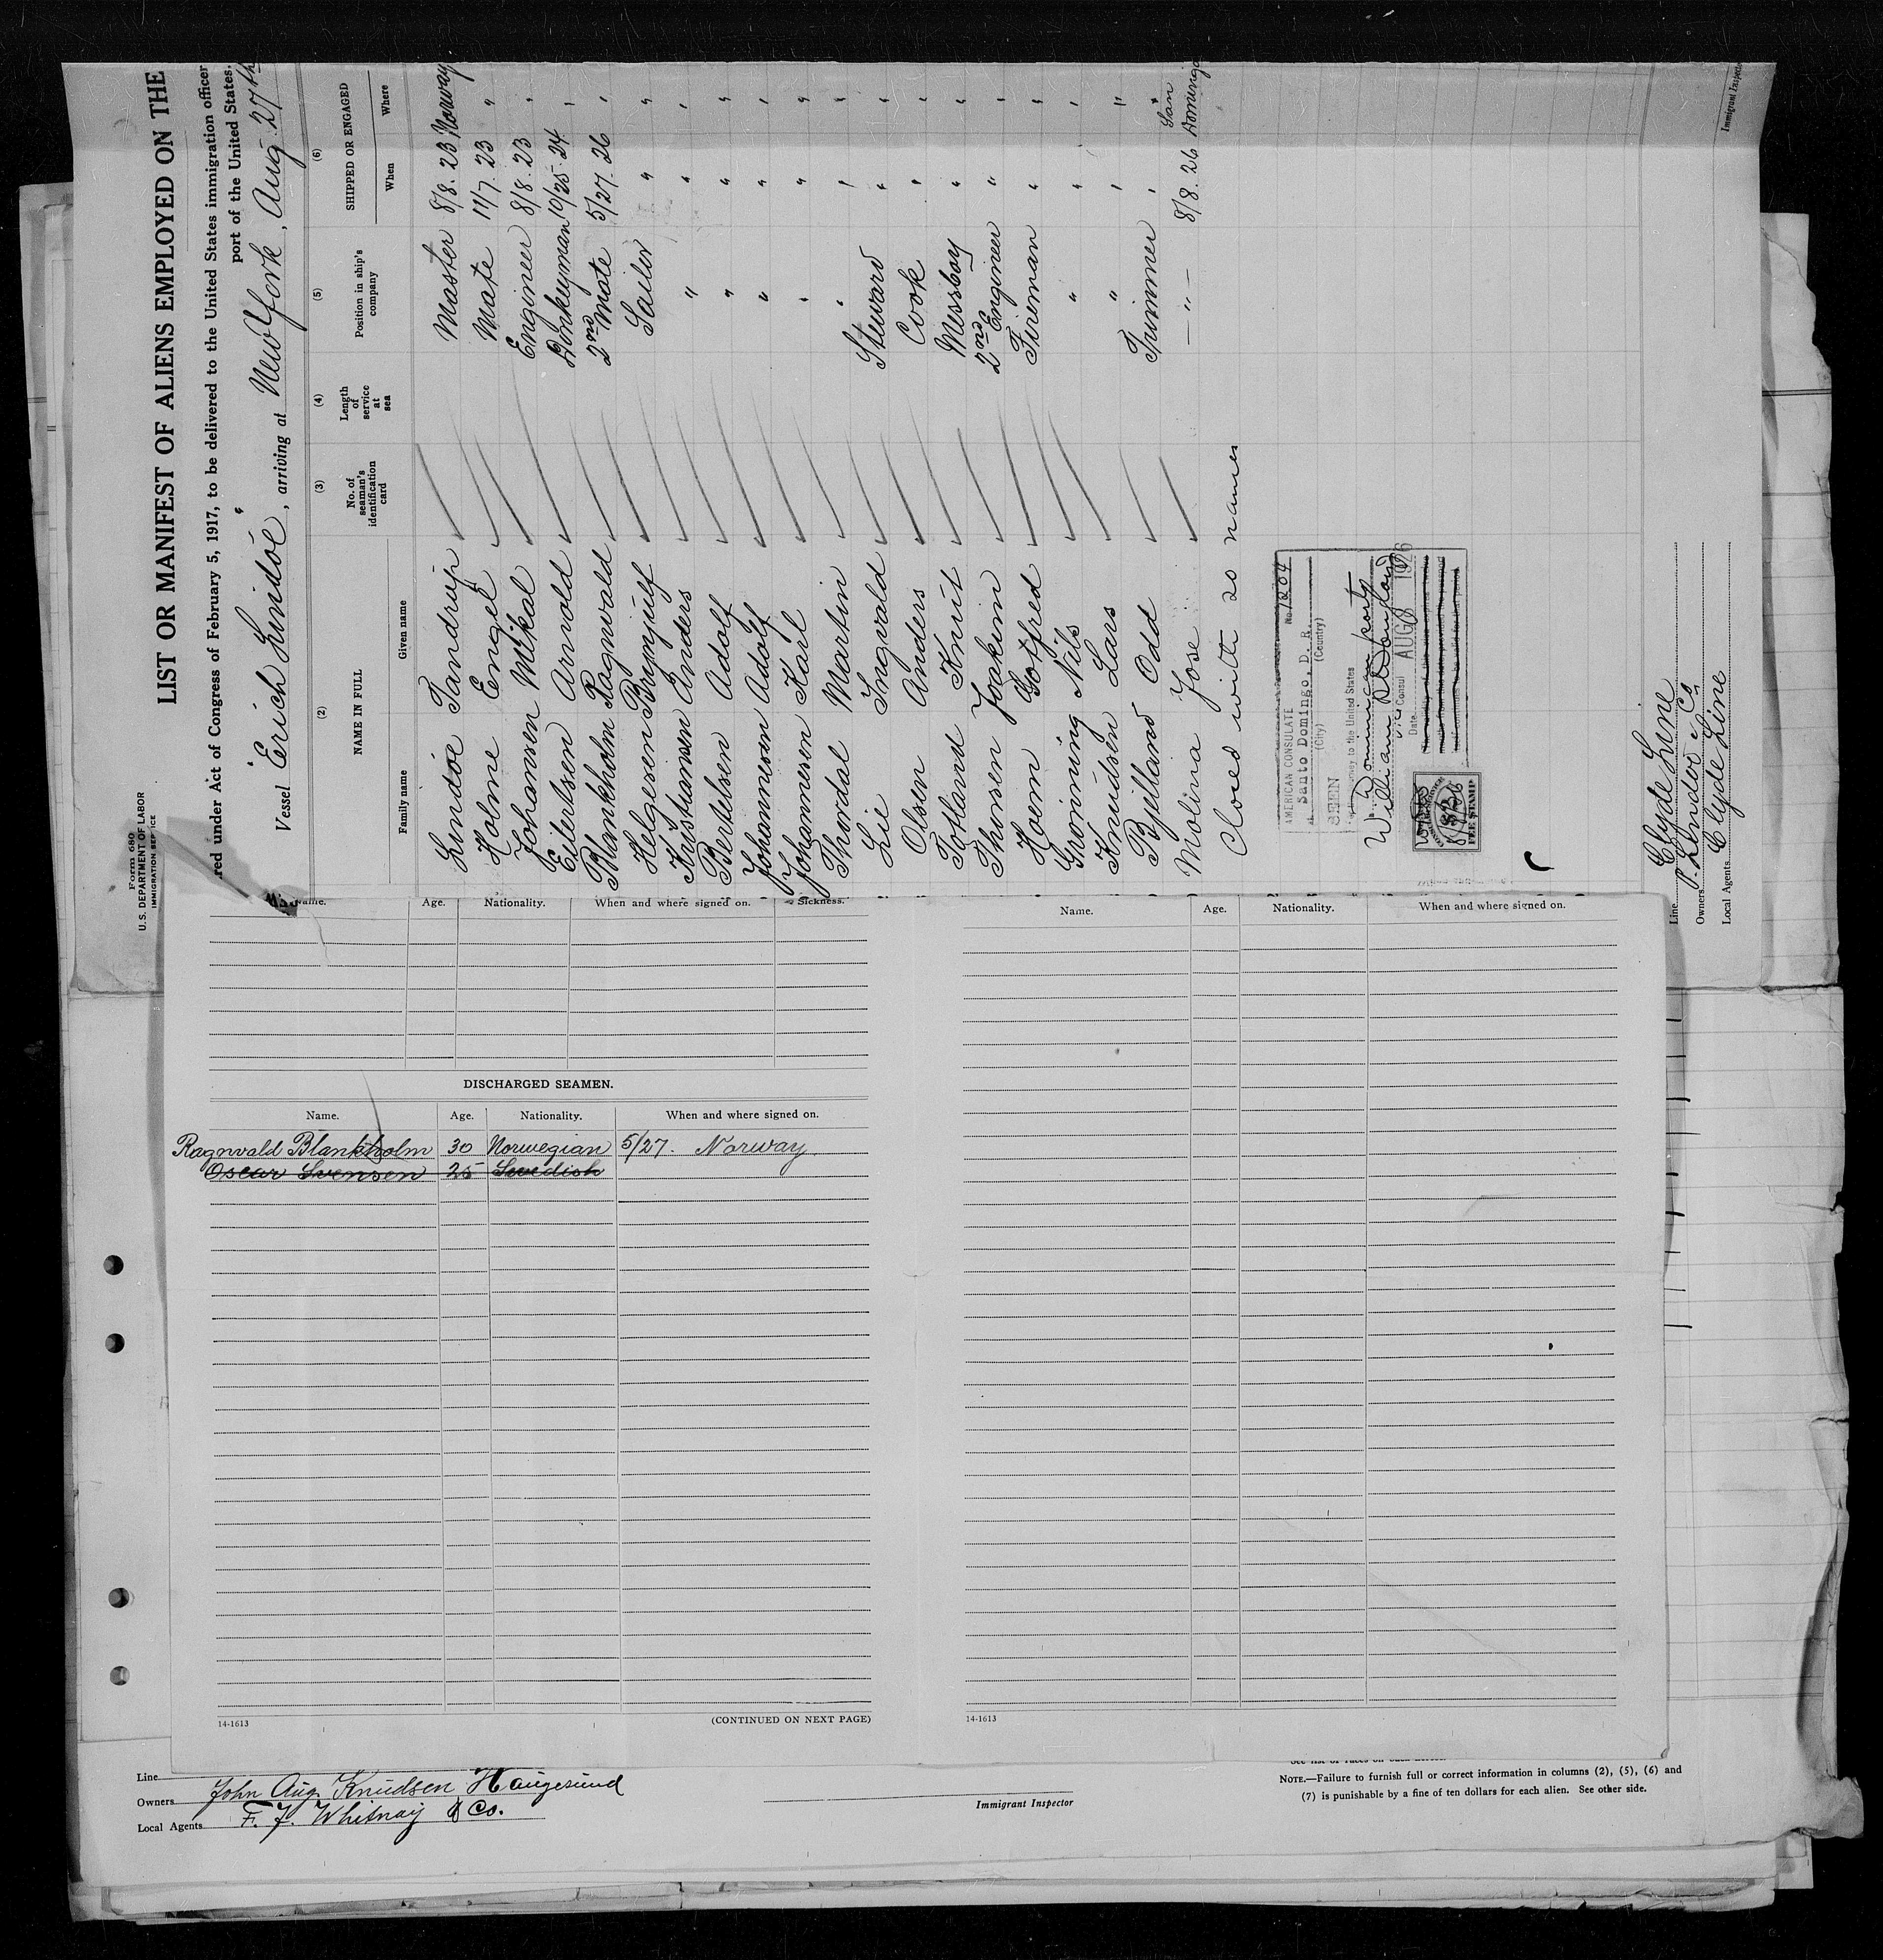 Form 680
U. S. DEPARTMENT OF LABOR
IMMIGRATION SERVICE
LIST OR MANIFEST OF ALIENS EMPLOYED ON THE
red under Act of Congress of February 5, 1917, to be delivered to the United States immigration officer
port of the United States.
Vessel "Erich Lindöe", arriving at New York, Aug. 27th
(2) (3) (4) (5) (6)
NAME IN FULL No. of seaman's identification card Length of service at sea Position in ship's company SHIPPED OR ENGAGED
Family name Given name When Where
Lindöe Tandrup Master 8/8. 23 Norway
Holme Engel Mate 11/7. 23 "
Johannsen Mikal Engineer 8/8. 23 "
Eilertsen Arnold Donkeyman 10/25. 24 "
Blankholm Ragnwald 2nd Mate 5/27. 26 "
Helgesen Brynjulf Sailor " "
Kristiansen Anders " " "
Bertelsen Adolf " " "
Johannesen Adolf " " "
Johannesen Karl " " "
Thordal Martin " " "
Lie Ingvald Steward " "
Olsen Anders Cook " "
Totland Knut Messboy " "
Thorsen Joakim 2nd Engineer " "
Haem Gotfred Fireman " "
Grönning Nils " " "
Knudsen Lars " " "
Bjelland Odd Trimmer " "
Molina Jose — " — 8/8. 26 San Domingo
Closes with 20 names
AMERICAN CONSULATE No. 1204
Santo Domingo, D. R.
(City) (Country)
SEEN
journey to the United States
Dominican ports
William
Consul
Date AUG 8 1926
FEE STAMP
Line Clyde Line
Owners P. Lindöe & Co
Local Agents Clyde Line
Immigrant Inspector
Name. Age. Nationality. When and where signed on. Sickness.
DISCHARGED SEAMEN.
Name. Age. Nationality. When and where signed on.
Ragnvald Blankholm 30 Norwegian 5/27. Norway
Oscar Svensen 25 Swedish
14-1613 (CONTINUED ON NEXT PAGE)
Name. Age. Nationality. When and where signed on.
14-1613
Line
Owners John Aug. Knudsen Haugesund
Local Agents F. J. Whitnay & Co.
Immigrant Inspector
NOTE.—Failure to furnish full or correct information in columns (2), (5), (6) and
(7) is punishable by a fine of ten dollars for each alien. See other side.